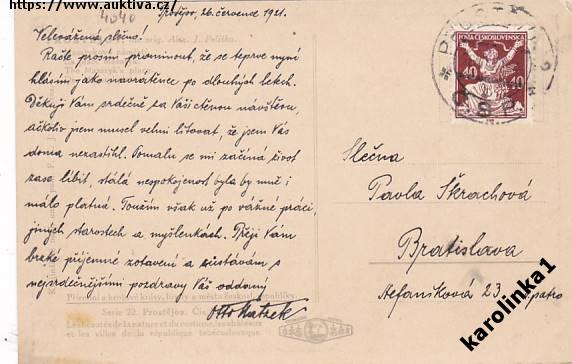 https://www.auktiva.cz/
4040
Prostějov, 26. července 1921.
Velevážená slečno!
Račte prosím prominout, že se teprve nyní
hlásím jako navrátilec po dlouhých letech.
Děkuji Vám srdečně za Vaši ctěnou návštěvu,
ačkoliv jsem musel velmi litovat, že jsem Vás
doma nezastihl. Pomalu se mi začíná život
zase líbit, stálá nespokojenost byla by mně i
málo platná. Toužím však už po vážné práci,
jiných starostech a myšlenkách. Přeji Vám
brzké příjemné zotavení a zůstávám s
nejsrdečnějšími pozdravy Váš oddaný
Otto
POŠTA ČESKOSLOVENSKÁ
40 40
Slečna
Pavla Škrachová
Bratislava
Štefaniková 23, patro
Serie 22. Prostějov.
Les beautés de la nature et du costume, les châteaux
et les villes de la république tchécoslovaque.
karolinka1